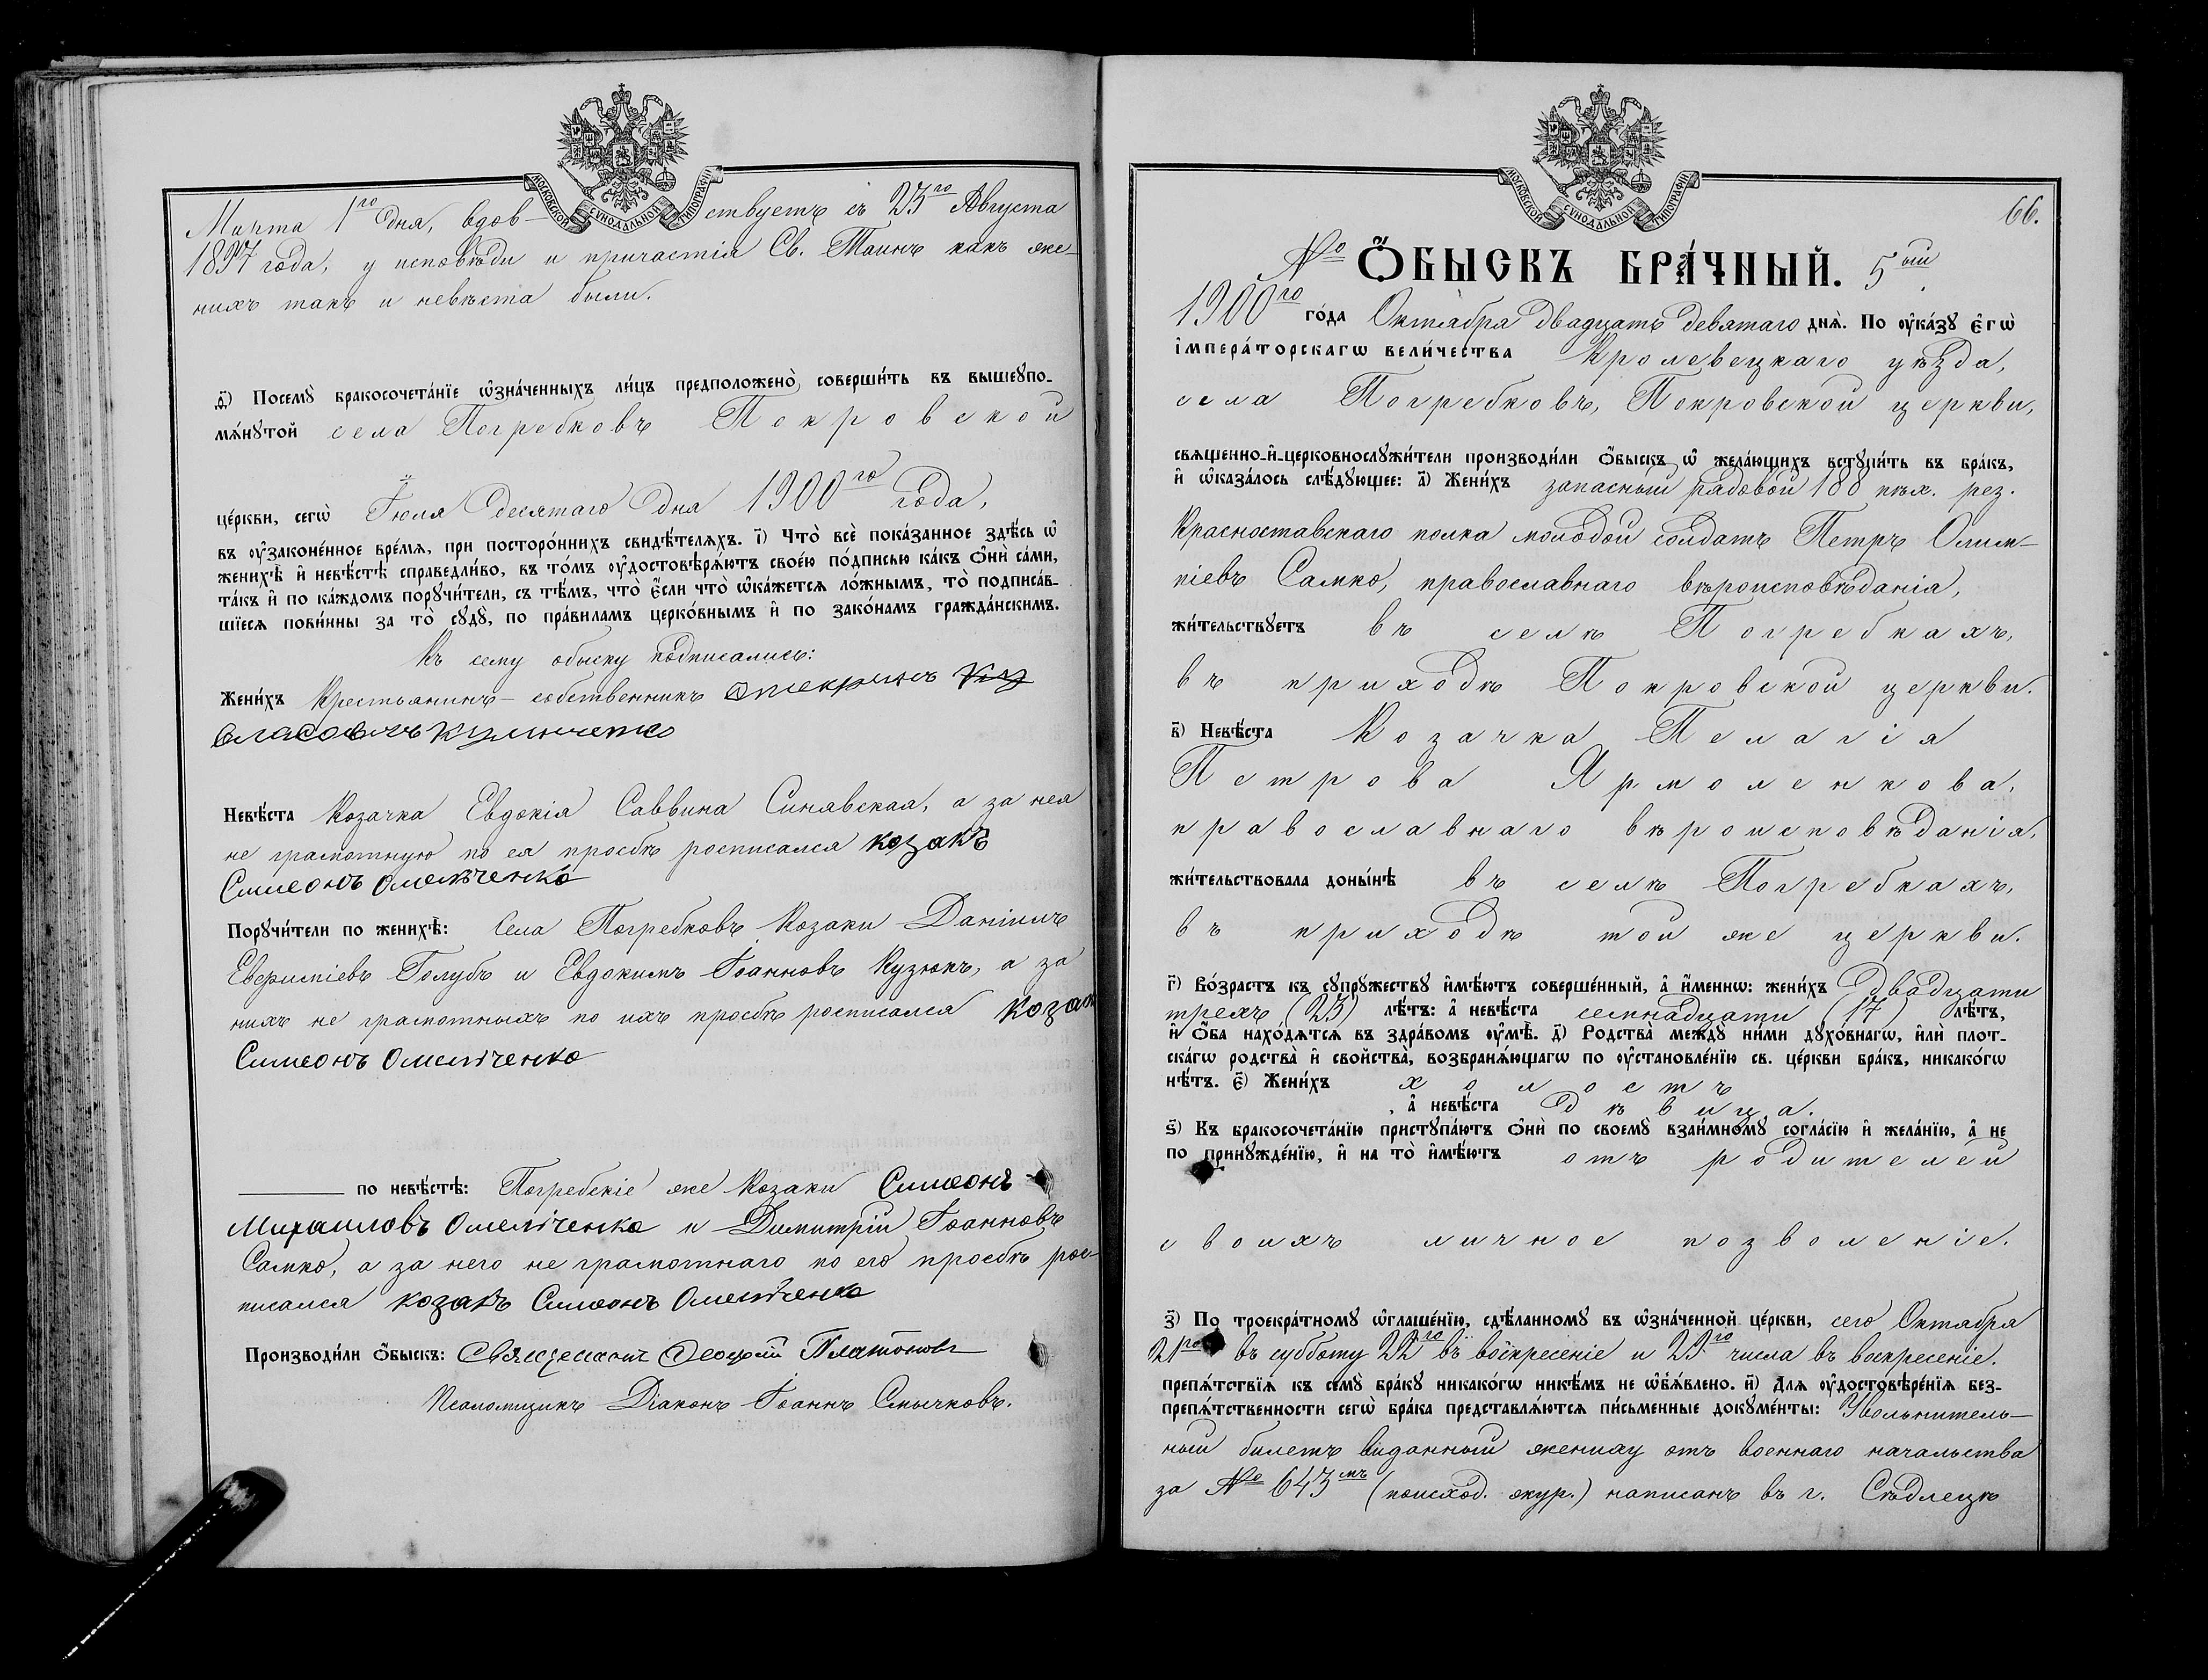 МОСКОВСКОЙ СѴНОДАЛЬНОЙ ТИПОГРАФІИ
Марта 1го дня, вдов-ствуетъ съ 25го Августа
1897 года, у исповѣди и причастія Св. Таинъ какъ же-
нихъ такъ и невѣста были.
ѳ҃) Посемꙋ̀ бракосочета́нїе ѡ҆зна́ченныхъ ли́цъ предположено̀ соверши́ть въ вышеꙋпо-
мѧ́нꙋтой села Погребковъ Покровской
це́ркви, сегѡ̀ Іюля десятаго дня 1900го года,
въ ᲂу҆законе́нное вре́мѧ, при посторо́ннихъ свидѣ́телѧхъ. і҃) Что̀ всѐ пока́занное здѣ́сь ѡ҆
женихѣ̀ и҆ невѣ́стѣ справедли́во, въ то́мъ ᲂу҆достовѣрѧ́ютъ свое́ю по́дписью ка́къ ѻ҆нѝ са́ми,
та́къ и҆ по ка́ждомъ порꙋчи́тели, съ тѣ́мъ, что̀ є҆́сли что̀ ѡ҆ка́жетсѧ ло́жнымъ, то̀ подписа́в-
шїесѧ пови́нны за то̀ сꙋдꙋ̀, по пра́виламъ церко́внымъ и҆ по зако́намъ гражда́нскимъ.
Къ сему обыску подписались:
Жени́хъ Крестьянинъ-собственникъ
Невѣ́ста Козачка Евдокія Саввина Синявская, а за нея
не грамотную по ея просьбѣ росписался козакъ
Симеонъ Омельченко
Порꙋчи́тели по женихѣ̀: Села Погребковъ Козаки Даніилъ
Голубъ и Евдокимъ Іоанновъ Кузюкъ, а за
нихъ не грамотныхъ по ихъ просьбѣ росписался козак
Симеонъ Омельченко
по невѣ́стѣ: Погребскіе же Козаки Симеонъ
Михаиловъ Омельченко и Димитрій Іоанновъ
Самко, а за него не грамотнаго по его просьбѣ рос-
писался козакъ Симеонъ Омельченко
Производи́ли ѻ҆́быскъ: Священникъ Платоновъ
Псаломщикъ Діаконъ Іоаннъ Смычковъ.
МОСКОВСКОЙ СѴНОДАЛЬНОЙ ТИПОГРАФІИ
66.
№ Ѻ҆́БЫСКЪ БРА́ЧНЫЙ. 5ый
1900го го́да Октября двадцать девятаго днѧ̀. По ᲂу҆ка́зꙋ є҆гѡ̀
і҆мпера́торскагѡ вели́чества Кролевецкаго уѣзда,
села Погребковъ, Покровской церкви,
свѧщенно-и҆-церковнослꙋжи́тели производи́ли ѻ҆́быскъ ѡ҆ жела́ющихъ встꙋпи́ть въ бра́къ,
и҆ ѡ҆каза́лось слѣ́дꙋющее: а҃) Жени́хъ запасный рядовой 188 пѣх. рез.
Красноставскаго полка молодой солдатъ Петръ Олим-
піевъ Самко, православнаго вѣроисповѣданія,
жи́тельствꙋетъ въ селѣ Погребкахъ,
въ приходѣ Покровской церкви.
в҃) Невѣ́ста Козачка Пелагія
Петрова Ярмоленкова,
православнаго вѣроисповѣданія,
жи́тельствовала доны́нѣ въ селѣ Погребкахъ,
въ приходѣ той же церкви.
г҃) Во́зрастъ къ сꙋпрꙋ́жествꙋ и҆мѣ́ютъ соверше́нный, а҆ и҆́меннѡ: жени́хъ двадцати
трехъ (23) лѣ́тъ: а҆ невѣ́ста семнадцати (17) лѣ́тъ,
и҆ ѻ҆́ба нахо́дѧтсѧ въ здра́вомъ ᲂу҆мѣ̀. д҃) Родства̀ междꙋ̀ ни́ми дꙋхо́внагѡ, и҆лѝ плот-
ска́гѡ родства̀ и҆ свойства̀, возбранѧ́ющагѡ по ᲂу҆становле́нїю св. це́ркви бра́къ, никако́гѡ
нѣ́тъ. є҃) Жени́хъ холостъ
, а҆ невѣ́ста дѣвица.
ѕ҃) Къ бракосочета́нїю пристꙋпа́ютъ ѻ҆нѝ по своемꙋ̀ взаи́мномꙋ согла́сїю и҆ жела́нїю, а҆ не
по принꙋжде́нїю, и҆ на то̀ и҆мѣ́ютъ отъ родителей
своихъ личное позволеніе.
з҃) По троекра́тномꙋ ѡ҆глаше́нїю, сдѣ́ланномꙋ въ ѡ҆зна́ченной це́ркви, сего Октября
21го въ субботу 22го въ воскресеніе и 29го числа въ воскресеніе.
препѧ́тствїѧ къ семꙋ̀ бра́кꙋ никако́гѡ никѣ́мъ не ѡ҆б̾ѧ́влено. и҃) Длѧ ᲂу҆достовѣре́нїѧ без-
препѧ́тственности сегѡ̀ бра́ка представлѧ́ютсѧ пи́сьменные докꙋме́нты: Увольнитель-
ный билетъ виданный жениху отъ военнаго начальства
за № 643мъ (поисход. жур.) написанъ въ г. Сѣдлецѣ